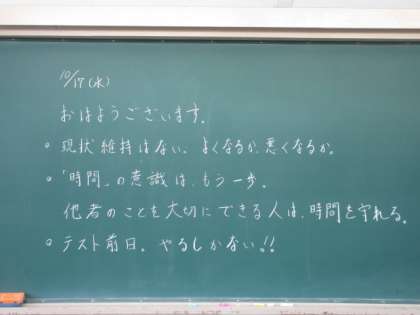 10/17(水)
おはようございます。
• 現状維持はない、よくなるか、悪くなるか。
• 「時間」の意識は、もう一歩。
他者のことを大切にできる人は、時間を守れる。
• テスト前日。やるしかない!!